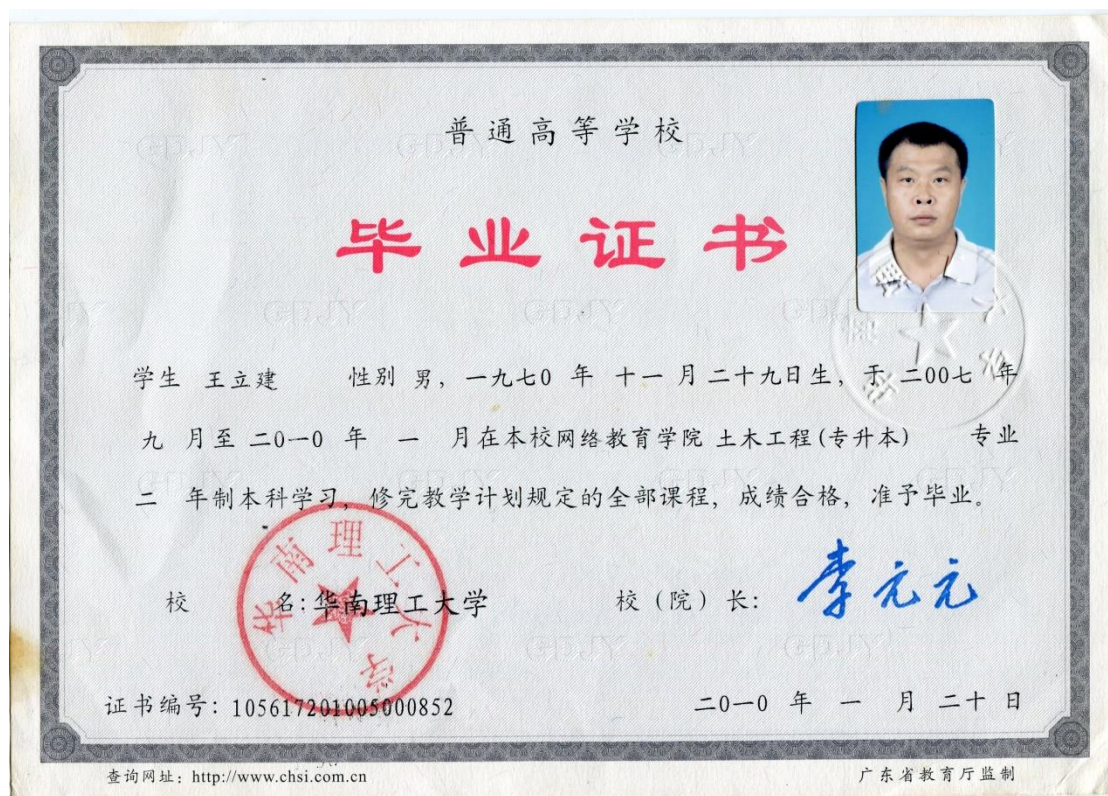 普通高等学校
毕业证书
学生 王立建 性别 男，一九七0 年 十一 月 二十九日生，于 二00七 年
九 月至 二0一0 年 一 月在本校网络教育学院 土木工程(专升本) 专业
二 年制本科学习，修完教学计划规定的全部课程，成绩合格，准予毕业。
校 名：华南理工大学 校（院）长：李元元
华南理工大学
证书编号：105617201005000852 二0一0 年 一 月 二十 日
查询网址：http://www.chsi.com.cn 广东省教育厅监制
GDJY